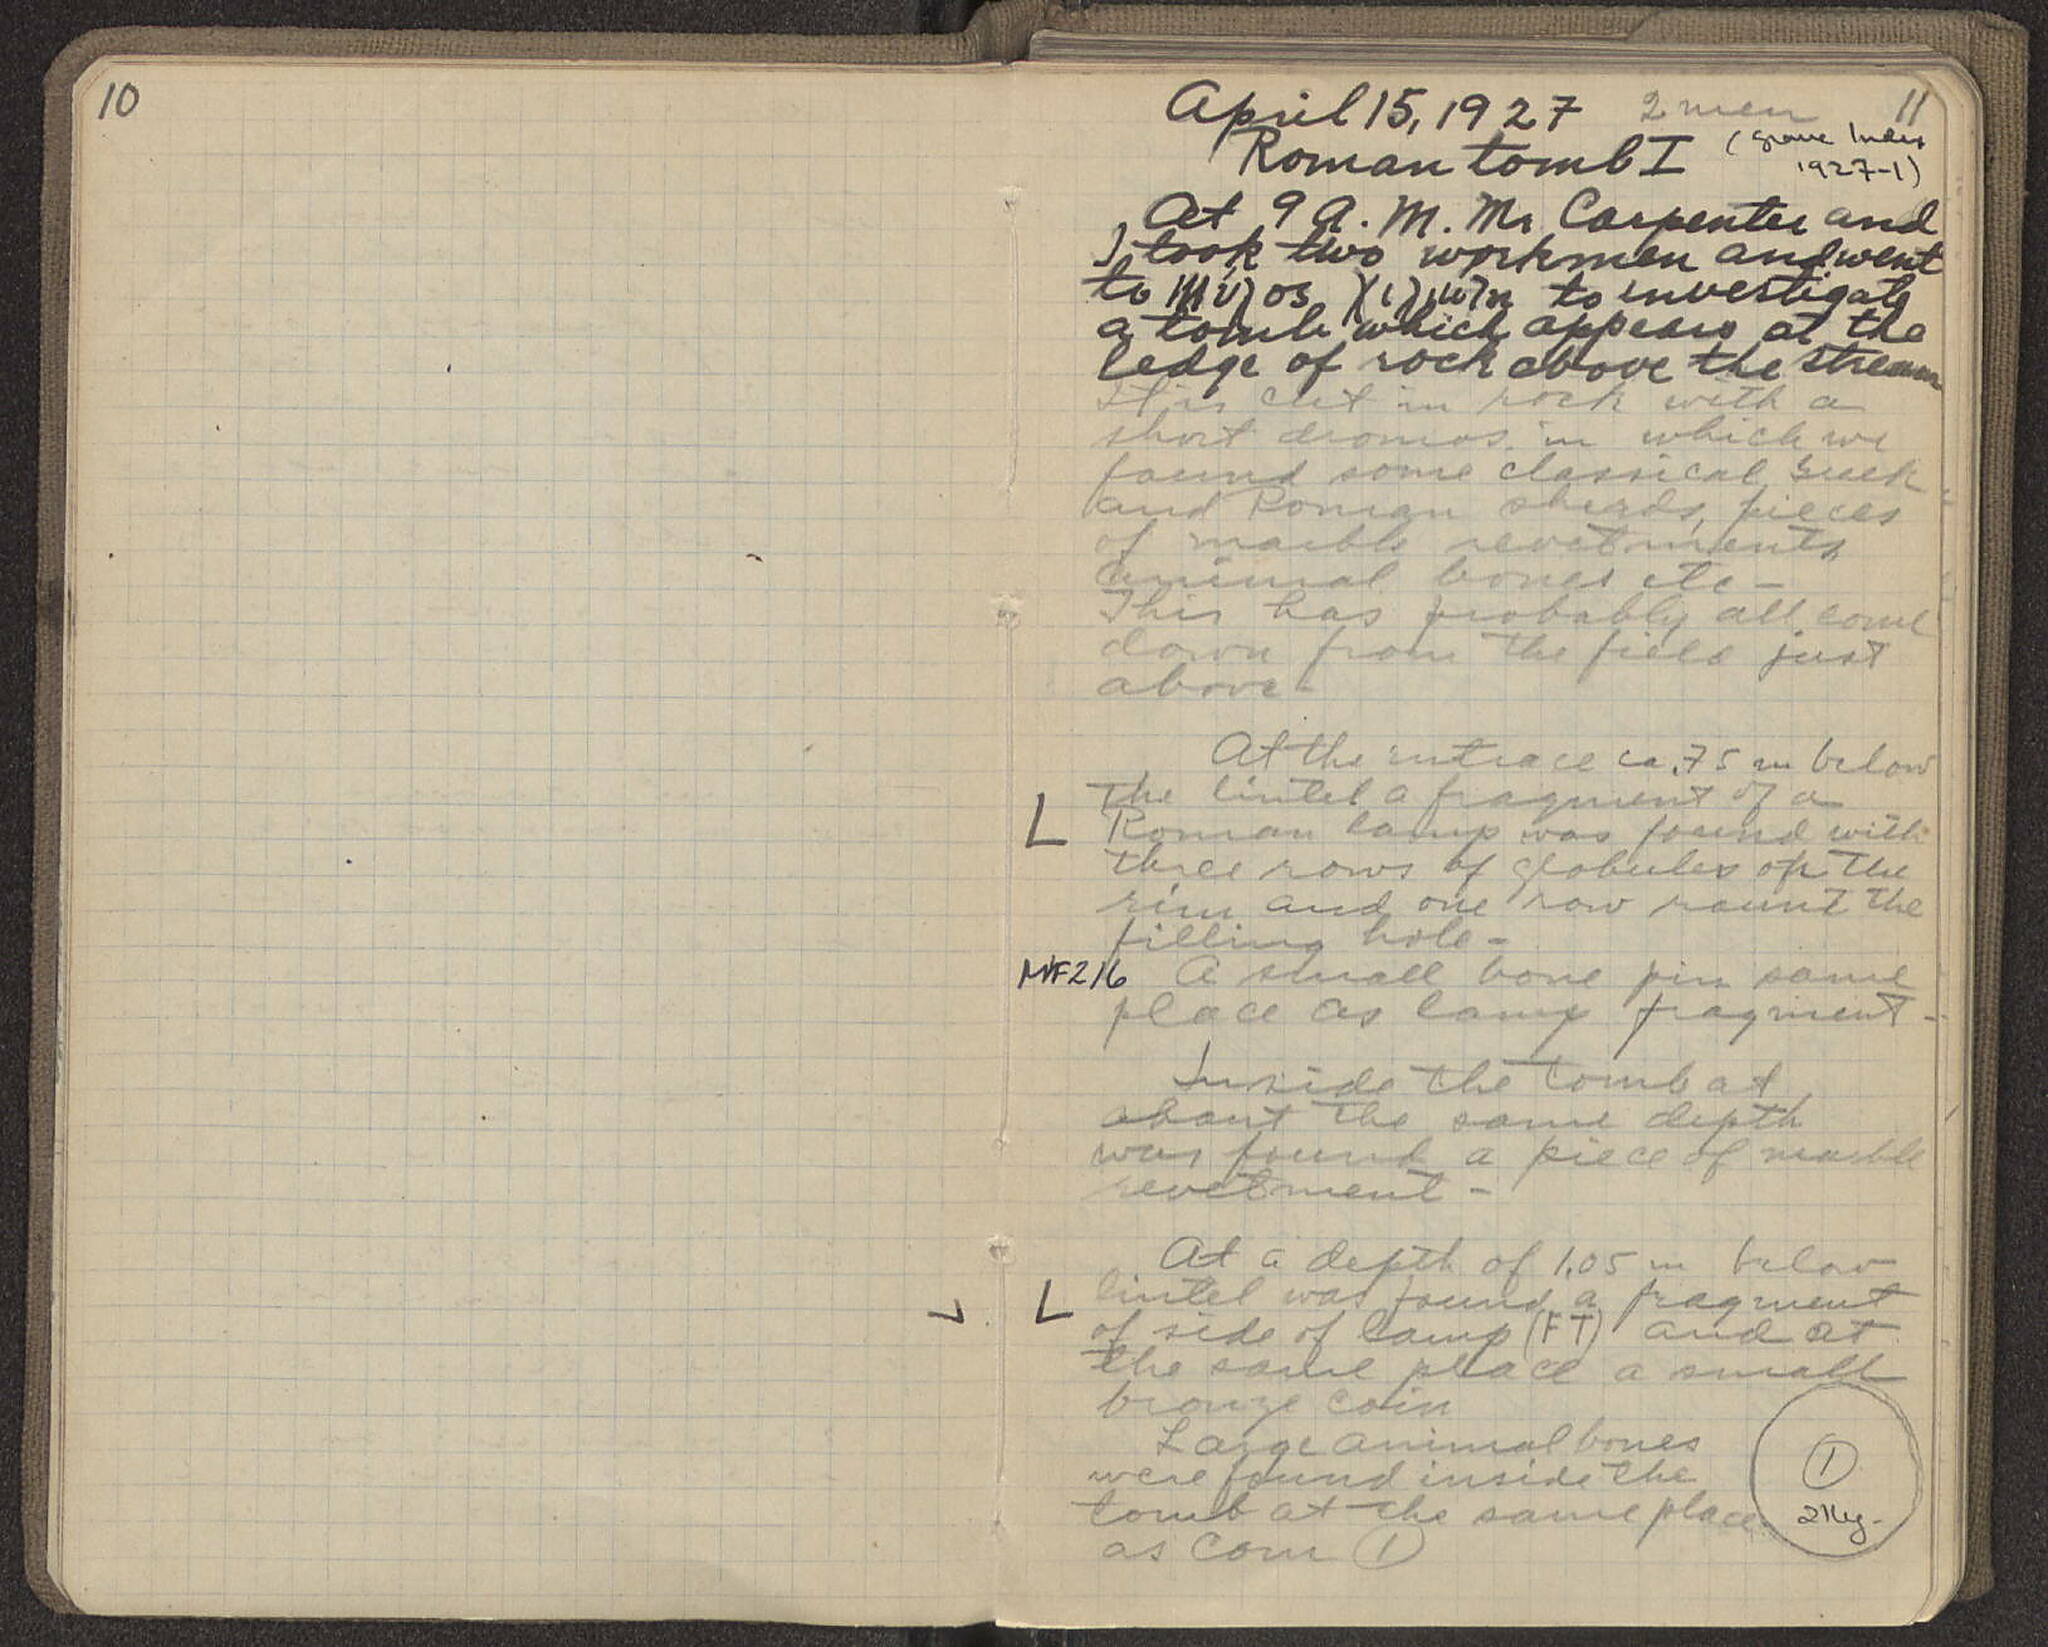 10
April 15, 1927 2 men 11
Roman tomb I (Grave Index
1927-1)
At 9 A.M. Mr Carpenter and
I took two workmen and went
to to investigate
a tomb which appears at the
ledge of rock above the stream
It is cut in rock with a
short dromos in which we
found some classical Greek
and Roman sherds, pieces
of marble revetments,
animal bones etc -
This has probably all come
down from the field just
above -
At the entrace ca .75 m below
the lintel a fragment of a
L Roman lamp was found with
three rows of globules on the
rim and one row round the
filling hole -
MF216 A small bone pin same
place as lamp fragment -
Inside the tomb at
about the same depth
was found a piece of marble
revetment -
At a depth of 1.05 m below
L lintel was found a fragment
of side of lamp (FT) and at
the same place a small
bronze coin
Large animal bones
were found inside the
tomb at the same place
as Coin 1
1